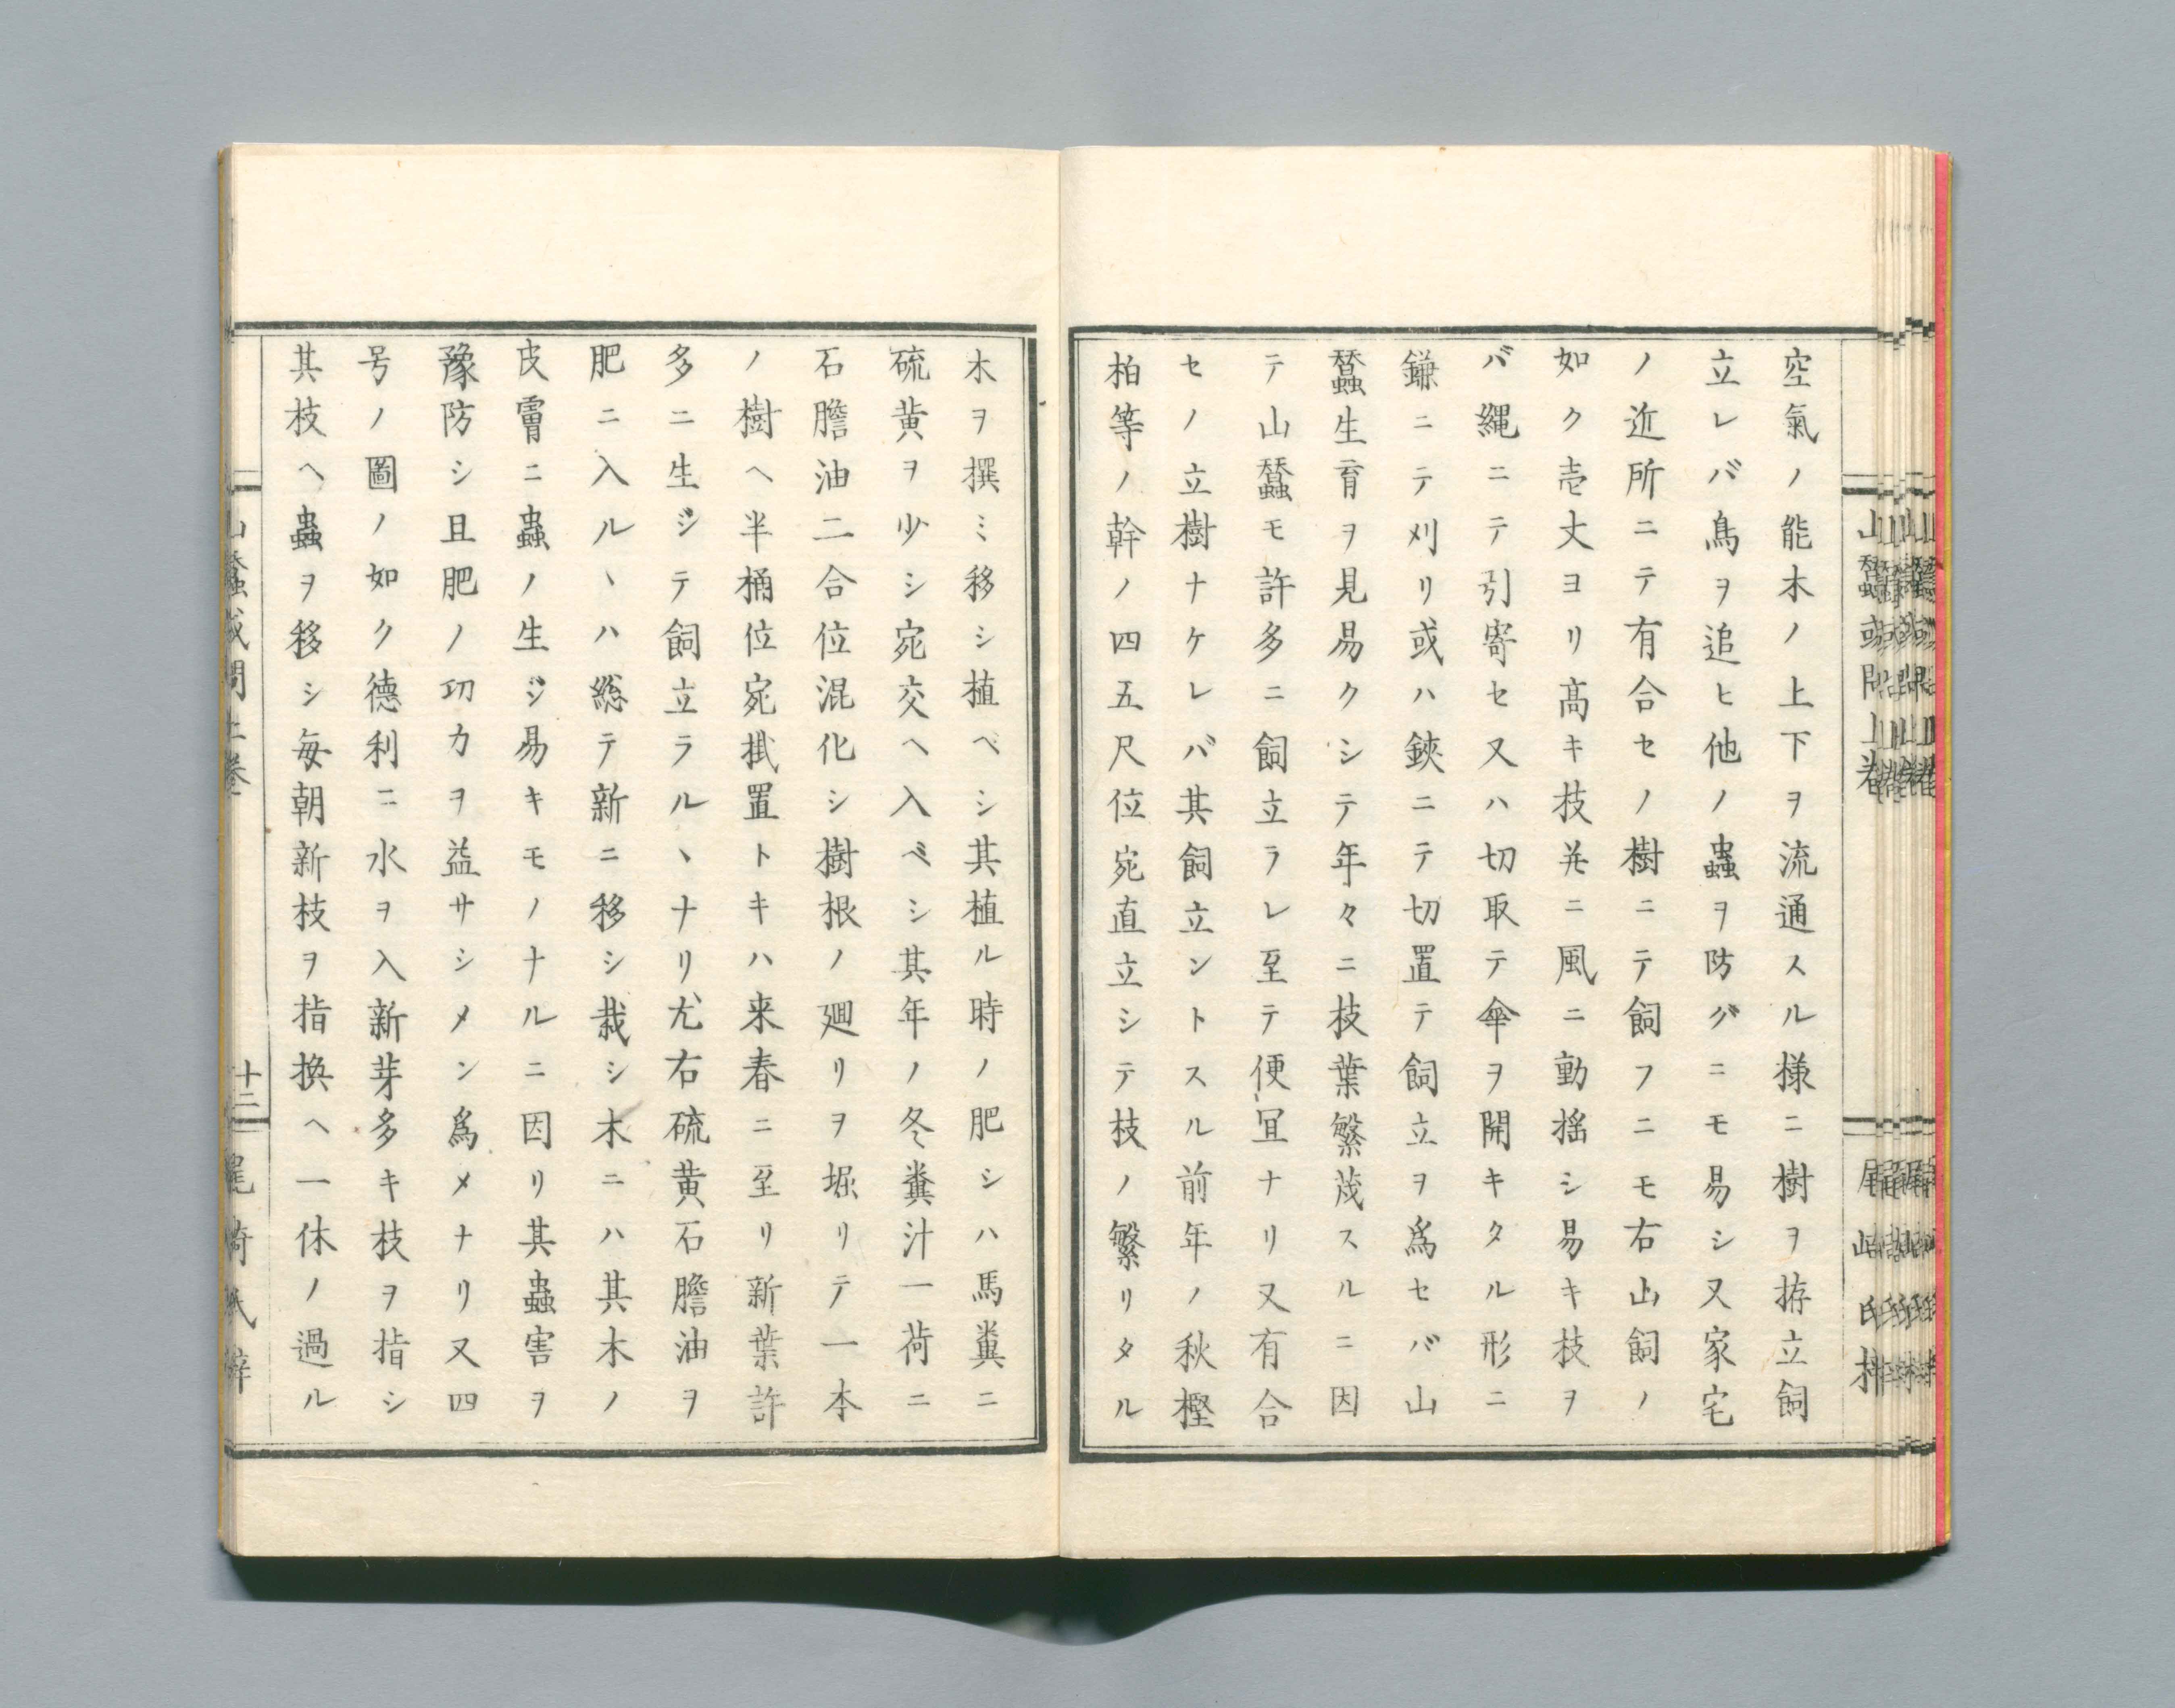 空氣ノ能木ノ上下ヲ流通スル様ニ樹ヲ拵立飼
立レバ鳥ヲ追ヒ他ノ蟲ヲ防グニモ易シ又家宅
ノ近所ニテ有合セノ樹ニテ飼フニモ右山飼ノ
如ク壱丈ヨリ髙キ枝并ニ風ニ動揺シ易キ枝ヲ
バ縄ニテ引寄セ又ハ切取テ傘ヲ開キタル形ニ
鎌ニテ刈リ或ハ鋏ニテ切置テ飼立ヲ為セバ山
蠶生育ヲ見易クシテ年々ニ枝葉繁茂スルニ因
テ山蠶モ許多ニ飼立ラレ至テ便冝ナリ又有合
セノ立樹ナケレバ其飼立ントスル前年ノ秋樫
柏等ノ幹ノ四五尺位宛直立シテ枝ノ繁リタル
木ヲ撰ミ移シ植ベシ其植ル時ノ肥シハ馬糞ニ
硫黄ヲ少シ宛交ヘ入ベシ其年ノ冬糞汁一荷ニ
石膽油二合位混化シ樹根ノ廻リヲ堀リテ一本
ノ樹ヘ半桶位宛掛置トキハ来春ニ至リ新葉許
多ニ生ジテ飼立ラルヽナリ尤右硫黄石膽油ヲ
肥ニ入ルヽハ総テ新ニ移シ栽シ木ニハ其木ノ
皮霤ニ蟲ノ生ジ易キモノナルニ因リ其蟲害ヲ
豫防シ且肥ノ功力ヲ益サシメン為メナリ又四
号ノ圖ノ如ク徳利ニ水ヲ入新芽多キ枝ヲ指シ
其枝ヘ蟲ヲ移シ毎朝新枝ヲ指換ヘ一休ノ過ル
山蠶或問上巻
十二
尾﨑氏梓